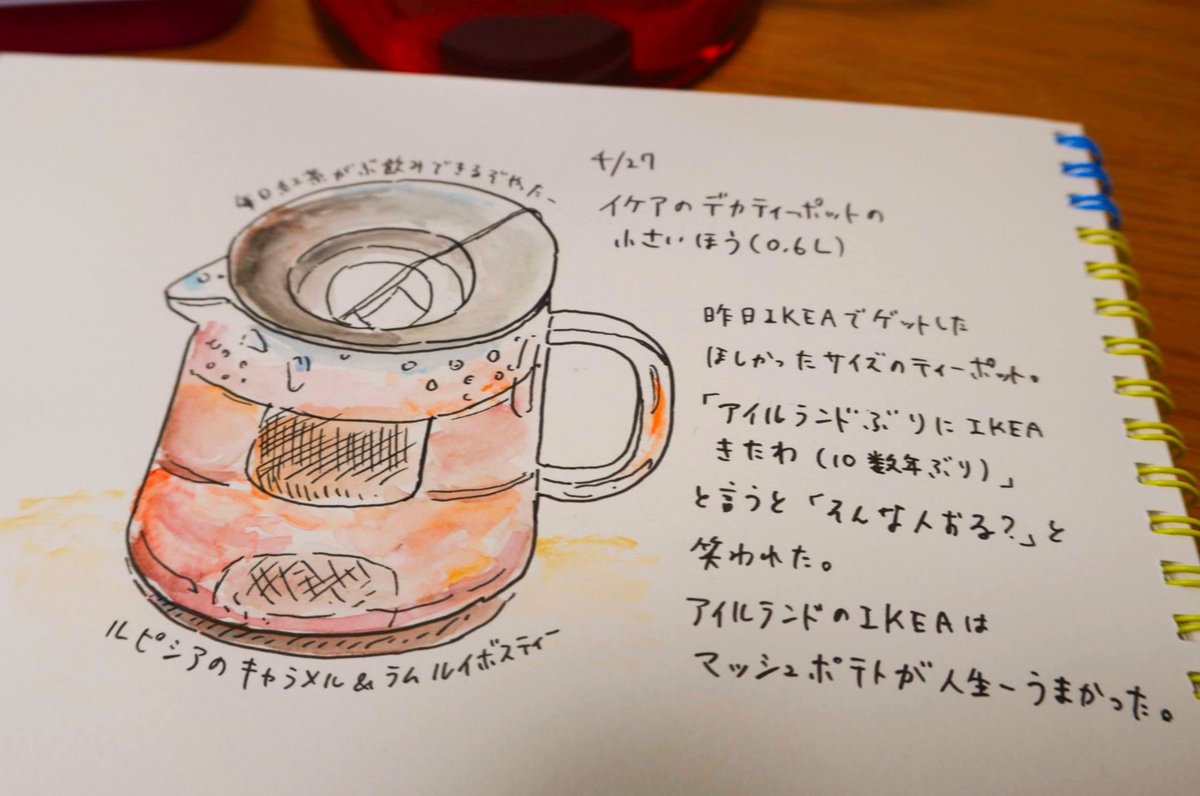 毎日紅茶がぶ飲みできるぞやたー
4/27
イケアのデカティーポットの
小さいほう(0.6L)
昨日IKEAでゲットした
ほしかったサイズのティーポット。
「アイルランドぶりにIKEA
きたわ(10数年ぶり)」
と言うと「そんな人おる?」と
笑われた。
アイルランドのIKEAは
マッシュポテトが人生一うまかった。
ルピシアのキャラメル&ラムルイボスティー